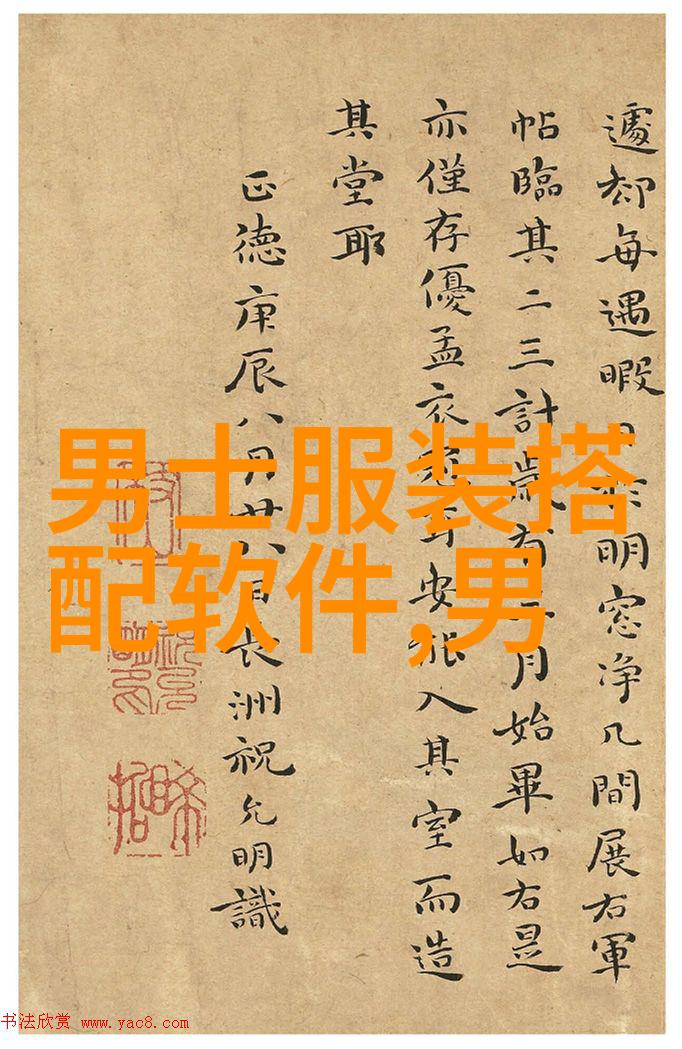 遽却每遇暇日於明窓净几間展右軍
帖臨其二三計歲有二月始畢如右是
亦僅存優孟衣耳安能入其室而造
其堂耶
正德庚辰八月廿八日長洲祝允明識
男士服装搭
配软件,男
书法欣赏 www.yac8.com